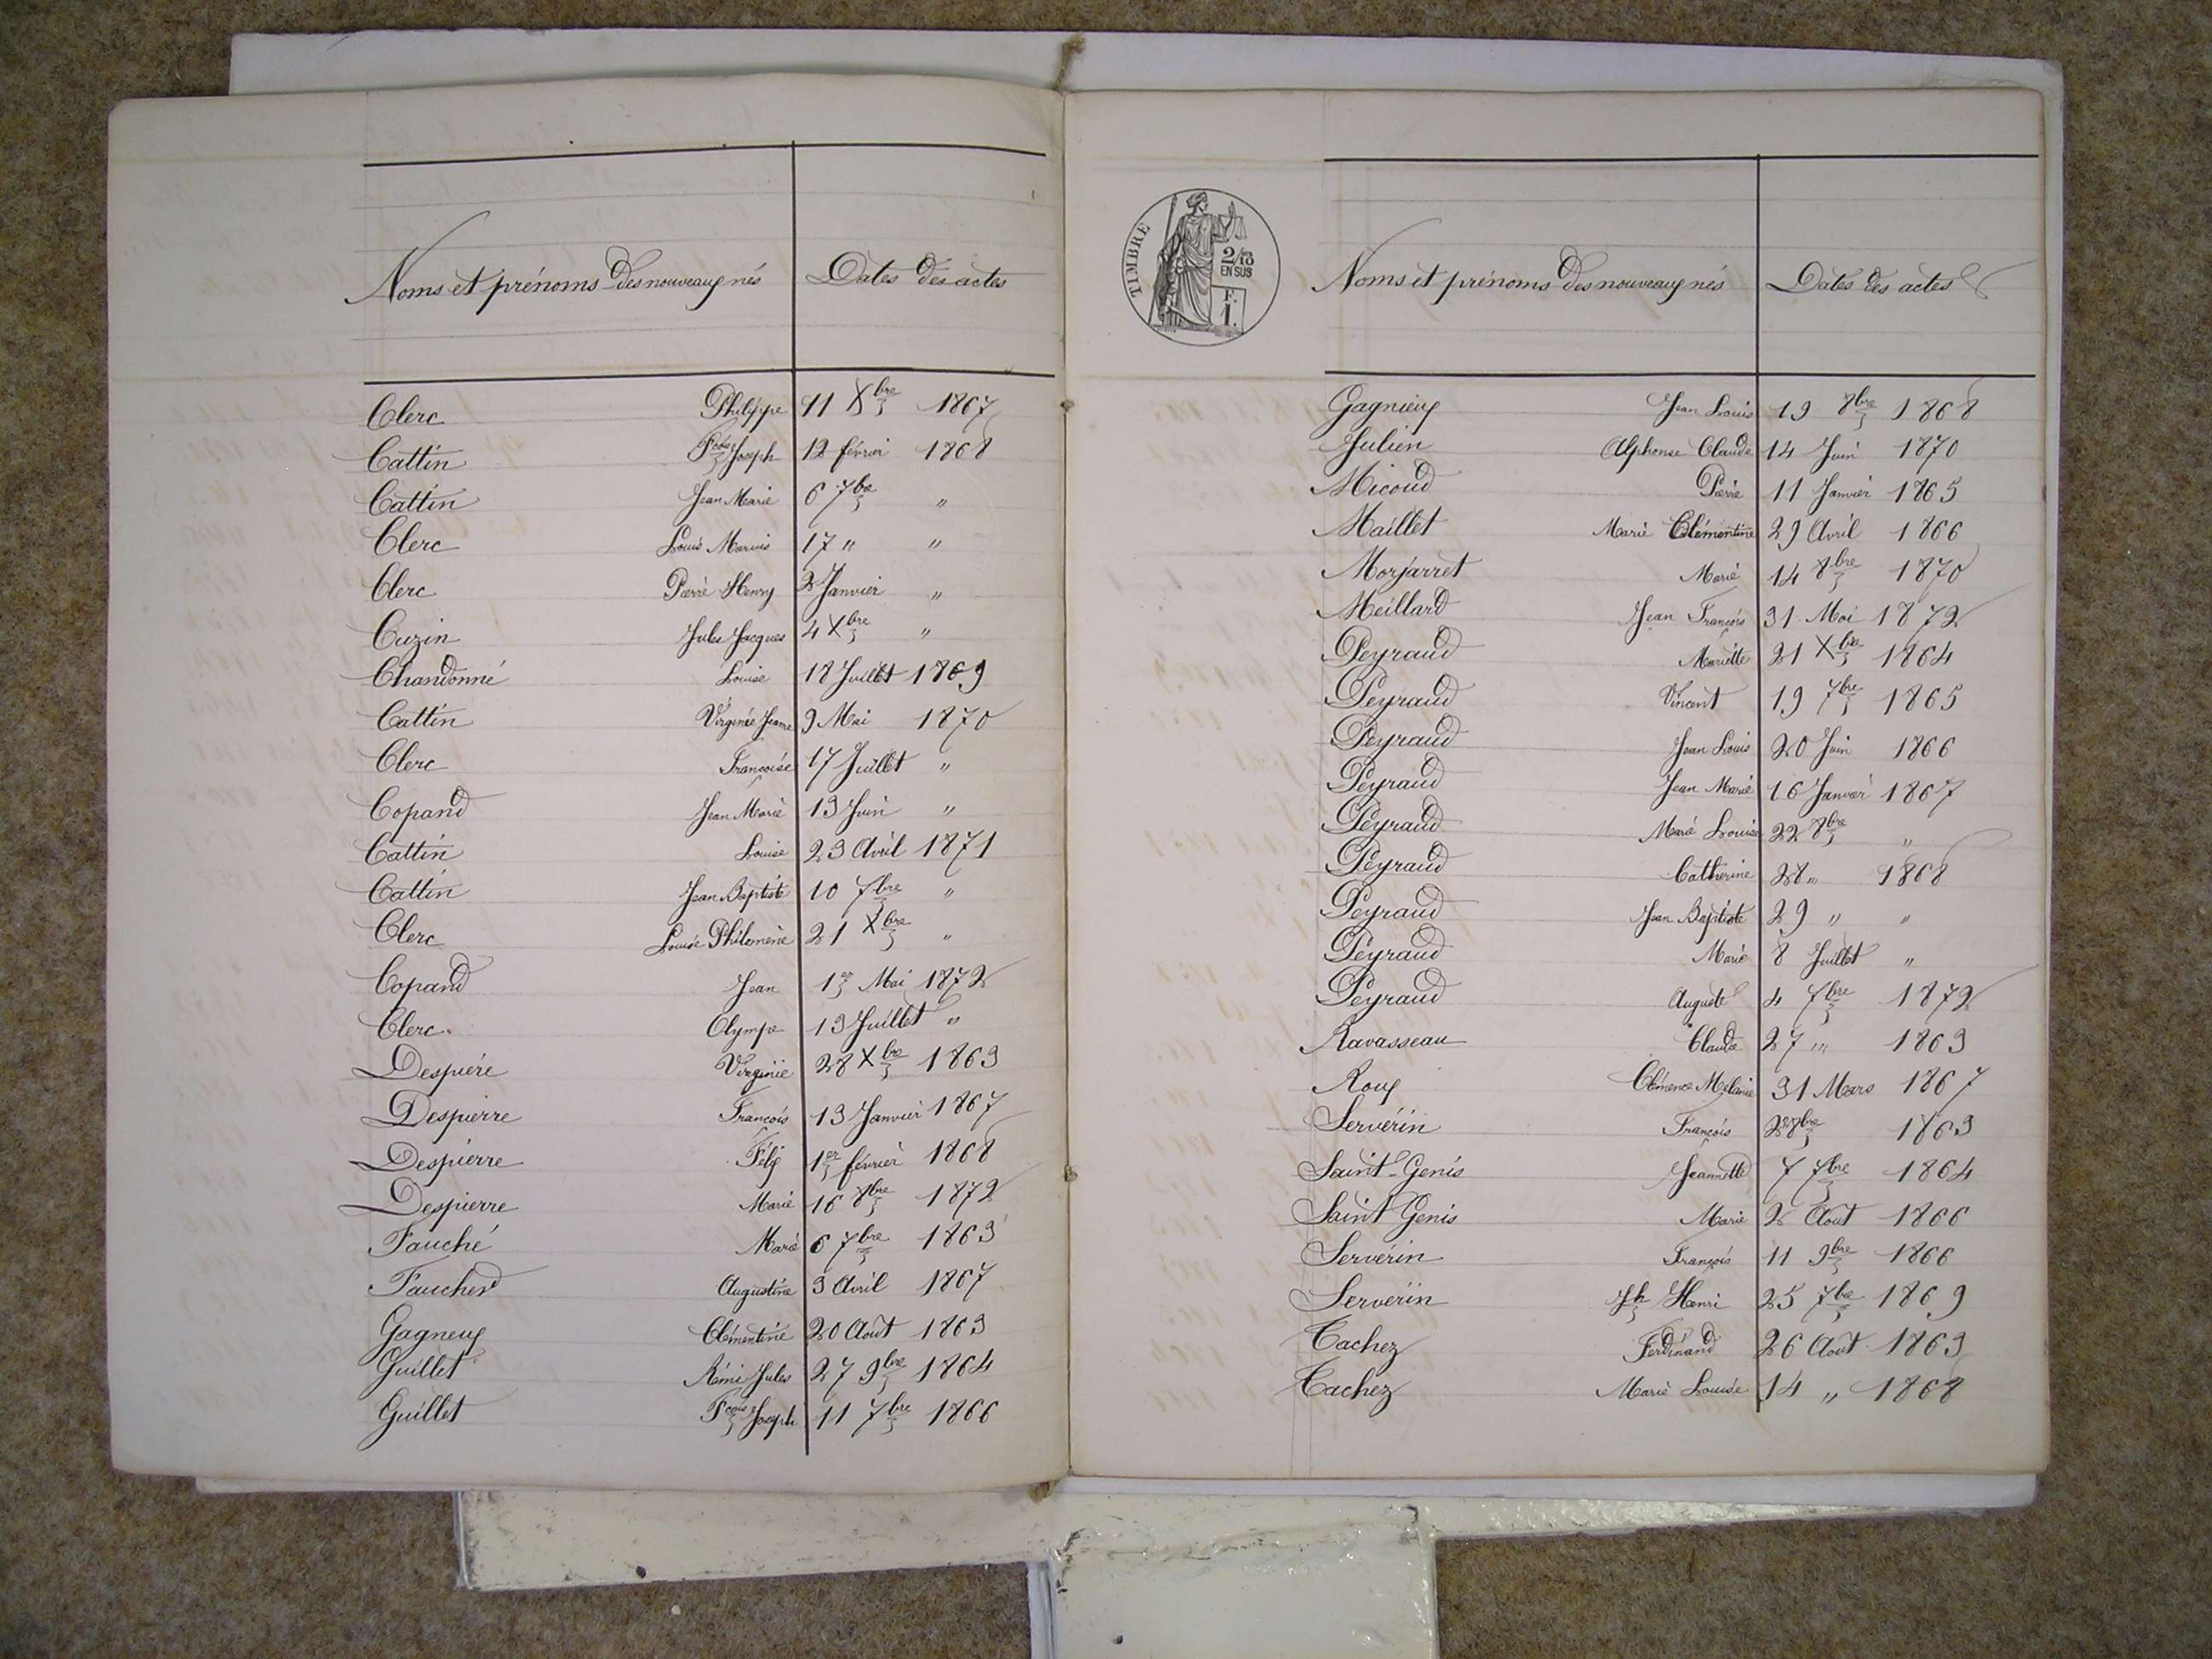 Noms et prénoms des nouveaux nés Dates des actes
Clerc Philippe 11 Xbre 1867
Cattin Fçois Joseph 12 février 1868
Cattin Jean Marie 6 7bre "
Clerc Louis Marius 17 " "
Clerc Pierre Henry 2 Janvier "
Cuzin Jules Jacques 4 Xbre "
Chandonné Louise 18 Juillet 1869
Cattin Virginie Jeanne 9 Mai 1870
Clerc Françoise 17 Juillet "
Copand Jean Marie 13 Juin "
Cattin Louise 23 Avril 1871
Cattin Jean Baptiste 10 7bre "
Clerc Louise Philomène 21 Xbre "
Copand Jean 1er Mai 1872
Clerc Olympe 13 Juillet "
Despière Virginie 28 Xbre 1863
Despierre François 13 Janvier 1867
Despierre Félix 1er février 1868
Despierre Marie 16 8bre 1872
Fauché Marie 6 7bre 1863
Faucher Augustine 3 Avril 1867
Gagneux Clémentine 20 Août 1863
Guillet Rémi Jules 27 9bre 1864
Guillet Fçois Joseph 11 7bre 1866
TIMBRE
2/10 EN SUS
F.
1.
Noms et prénoms des nouveaux nés Dates des actes
Gagnieux Jean Louis 19 8bre 1868
Julien Alphonse Claude 14 Juin 1870
Micoud Pierre 11 Janvier 1865
Maillet Marie Clémentine 29 Avril 1866
Morjarret Marie 14 8bre 1870
Meillard Jean François 31 Mai 1872
Peyraud Mariette 21 Xbre 1864
Peyraud Vincent 19 7bre 1865
Peyraud Jean Louis 20 Juin 1866
Peyraud Jean Marie 16 Janvier 1867
Peyraud Marie Louise 22 8bre "
Peyraud Catherine 28 " 1868
Peyraud Jean Baptiste 29 " "
Peyraud Marie 8 Juillet "
Peyraud Auguste 4 7bre 1872
Ravasseau Claude 27 " 1863
Roux Clémence Mélanie 31 Mars 1867
Servérin François 2 8bre 1863
Saint-Genis Jeannette 7 7bre 1864
Saint Genis Marie 2 Août 1866
Servérin François 11 9bre 1866
Servérin Jh Henri 25 7bre 1869
Tachez Ferdinand 26 Août 1863
Tachez Marie Louise 14 " 1868